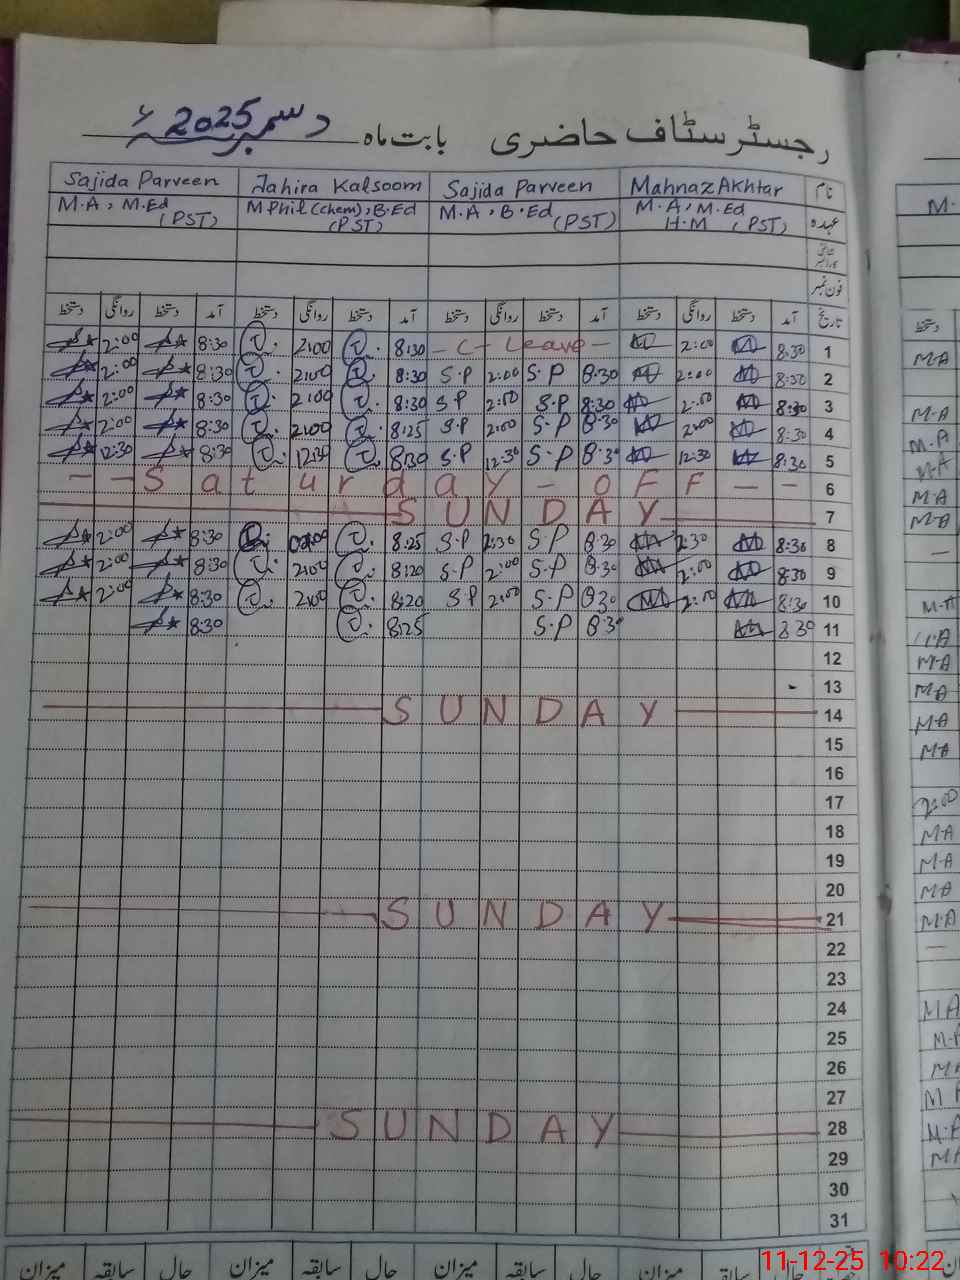 رجسٹر سٹاف حاضری بابت ماہ دسمبر 2025ء
نام Mahnaz Akhtar Sajida Parveen Tahira Kalsoom Sajida Parveen
عہدہ M.A, M.Ed H.M (PST) M.A, B.Ed (PST) M Phil (Chem), B.Ed (PST) M.A, M.Ed (PST)
فون نمبر
تاریخ آمد دستخط روانگی دستخط آمد دستخط روانگی دستخط آمد دستخط روانگی دستخط آمد دستخط روانگی دستخط
1 8:30 2:00 - C - Leave - 8:30 2:00 8:30 2:00
2 8:30 2:00 8:30 S.P 2:00 S.P 8:30 2:00 8:30 2:00
3 8:30 2:00 8:30 S.P 2:00 S.P 8:30 2:00 8:30 2:00
4 8:30 2:00 8:30 S.P 2:00 S.P 8:25 2:00 8:30 2:00
5 8:30 12:30 8:30 S.P 12:30 S.P 8:30 12:30 8:30 12:30
6 - - Saturday - OFF - -
7 SUNDAY
8 8:30 2:30 8:30 S.P 2:30 S.P 8:25 8:30 2:00
9 8:30 2:00 8:30 S.P 2:00 S.P 8:20 2:00 8:30 2:00
10 8:30 2:00 8:30 S.P 2:00 S.P 8:20 2:00 8:30 2:00
11 8:30 8:30 S.P 8:25 8:30
12
13
14 SUNDAY
15
16
17
18
19
20
21 SUNDAY
22
23
24
25
26
27
28 SUNDAY
29
30
31
میزان حال سابقہ میزان حال سابقہ میزان حال سابقہ میزان
M.
دستخط
M-A
M-A
M-A
M-A
M-A
M-A
—
M-A
M-A
M-A
M-A
M-A
2:00
M-A
M-A
M-A
M-A
—
MA
MA
11-12-25 10:22